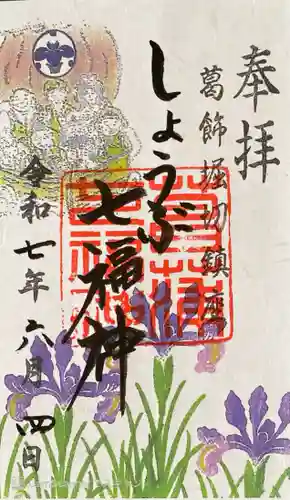 奉拝
葛飾堀切鎮座
しょうぶ
七福神
令和七年六月四日